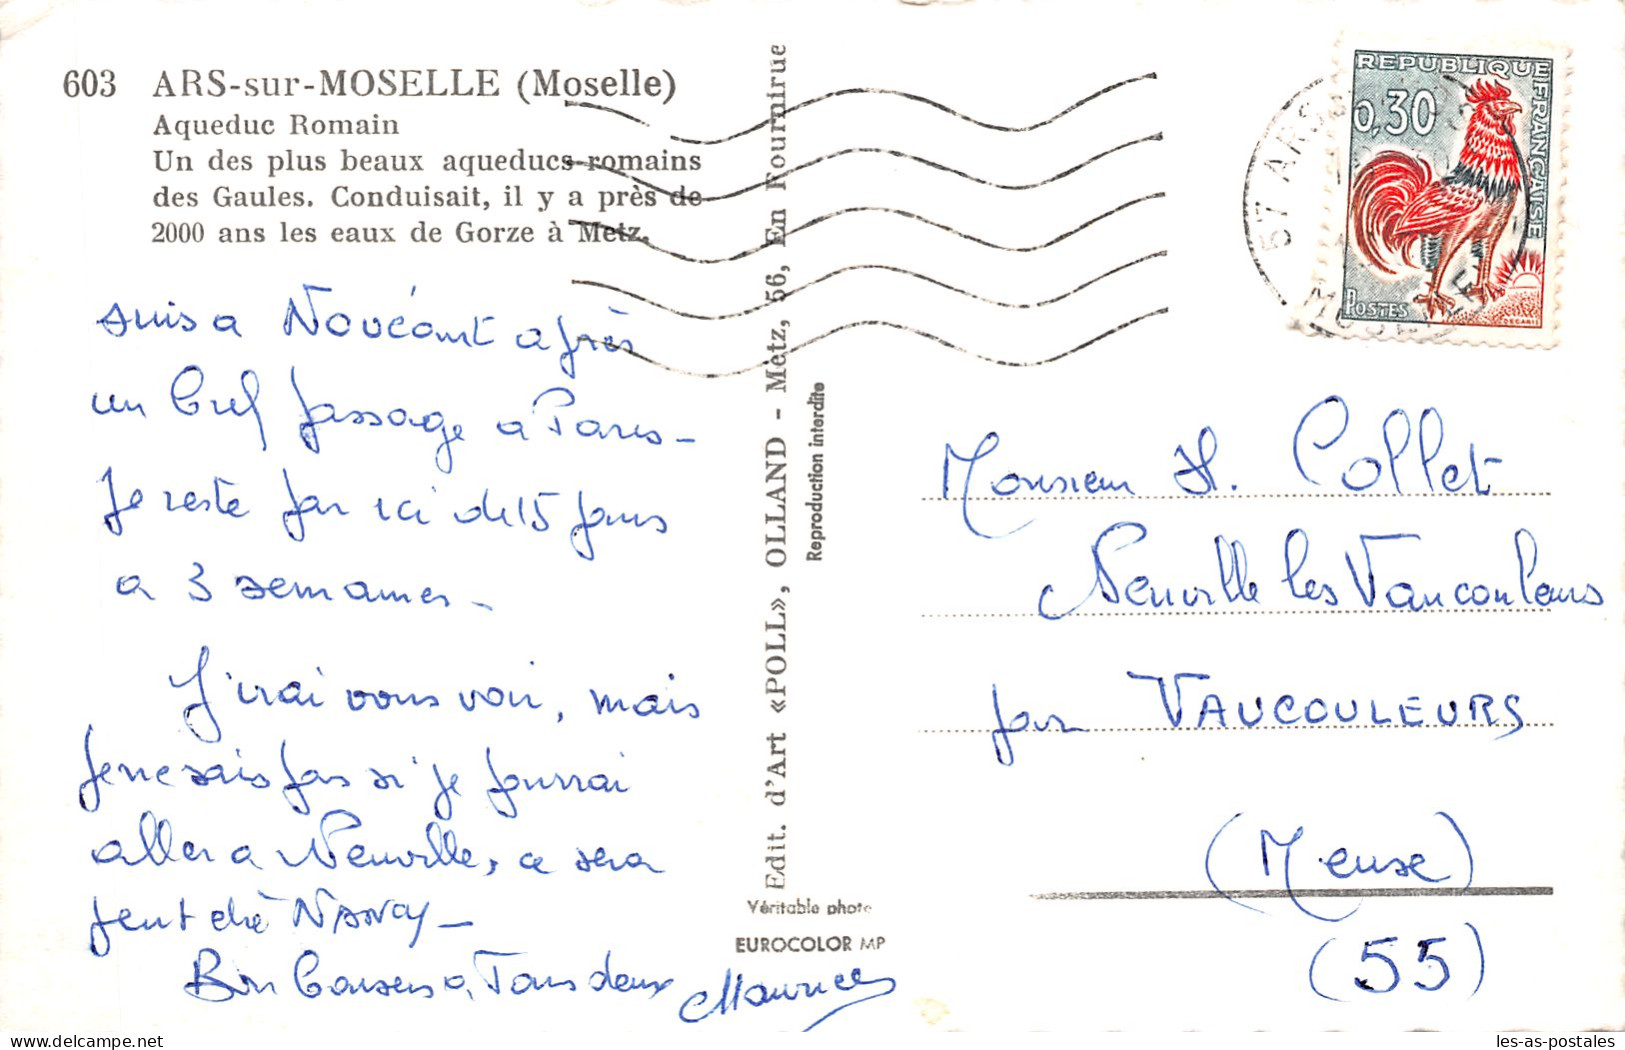 603 ARS-sur-MOSELLE (Moselle)
Aqueduc Romain
Un des plus beaux aqueducs romains
des Gaules. Conduisait, il y a près de
2000 ans les eaux de Gorze à Metz.
suis a Novéant après
un bref passage a Paris –
Je reste par ici de 15 jours
a 3 semaines –
J'irai vous voir, mais
je ne sais pas si je pourrai
aller a Neuville, ce sera
peut etre NANCY –
Bon baisers a Tous deux
Maurice
Edit. d'Art «POLL», OLLAND - Metz, 56, En Fournirue
Reproduction interdite
Véritable photo
EUROCOLOR MP
57 ARS
MOSELLE
REPUBLIQUE FRANÇAISE
0,30
POSTES
DECARIS
Monsieur H. Collet
Neuville les Vaucouleurs
par VAUCOULEURS
(Meuse)
(55)
delcampe.net
les-as-postales